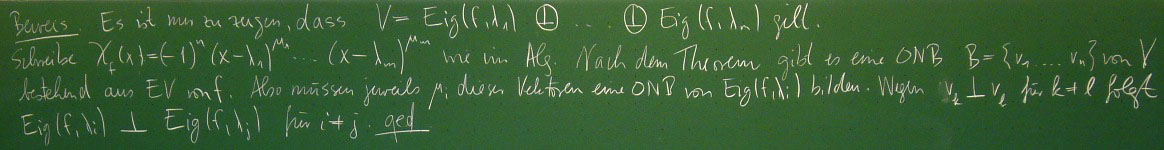 Beweis Es ist nun zu zeigen, dass V = Eig(f,λ₁) ⊥ ... ⊥ Eig(f,λₘ) gilt.
Schreibe χ_f(x)=(-1)ⁿ(x-λ₁)^μ₁ ... (x-λₘ)^μₘ wie im Alg. Nach dem Theorem gibt es eine ONB B={v₁ ... vₙ} von V
bestehend aus EV von f. Also müssen jeweils μᵢ dieser Vektoren eine ONB von Eig(f,λᵢ) bilden. Wegen v_k ⊥ v_ℓ für k≠ℓ folgt
Eig(f,λᵢ) ⊥ Eig(f,λⱼ) für i≠j. qed